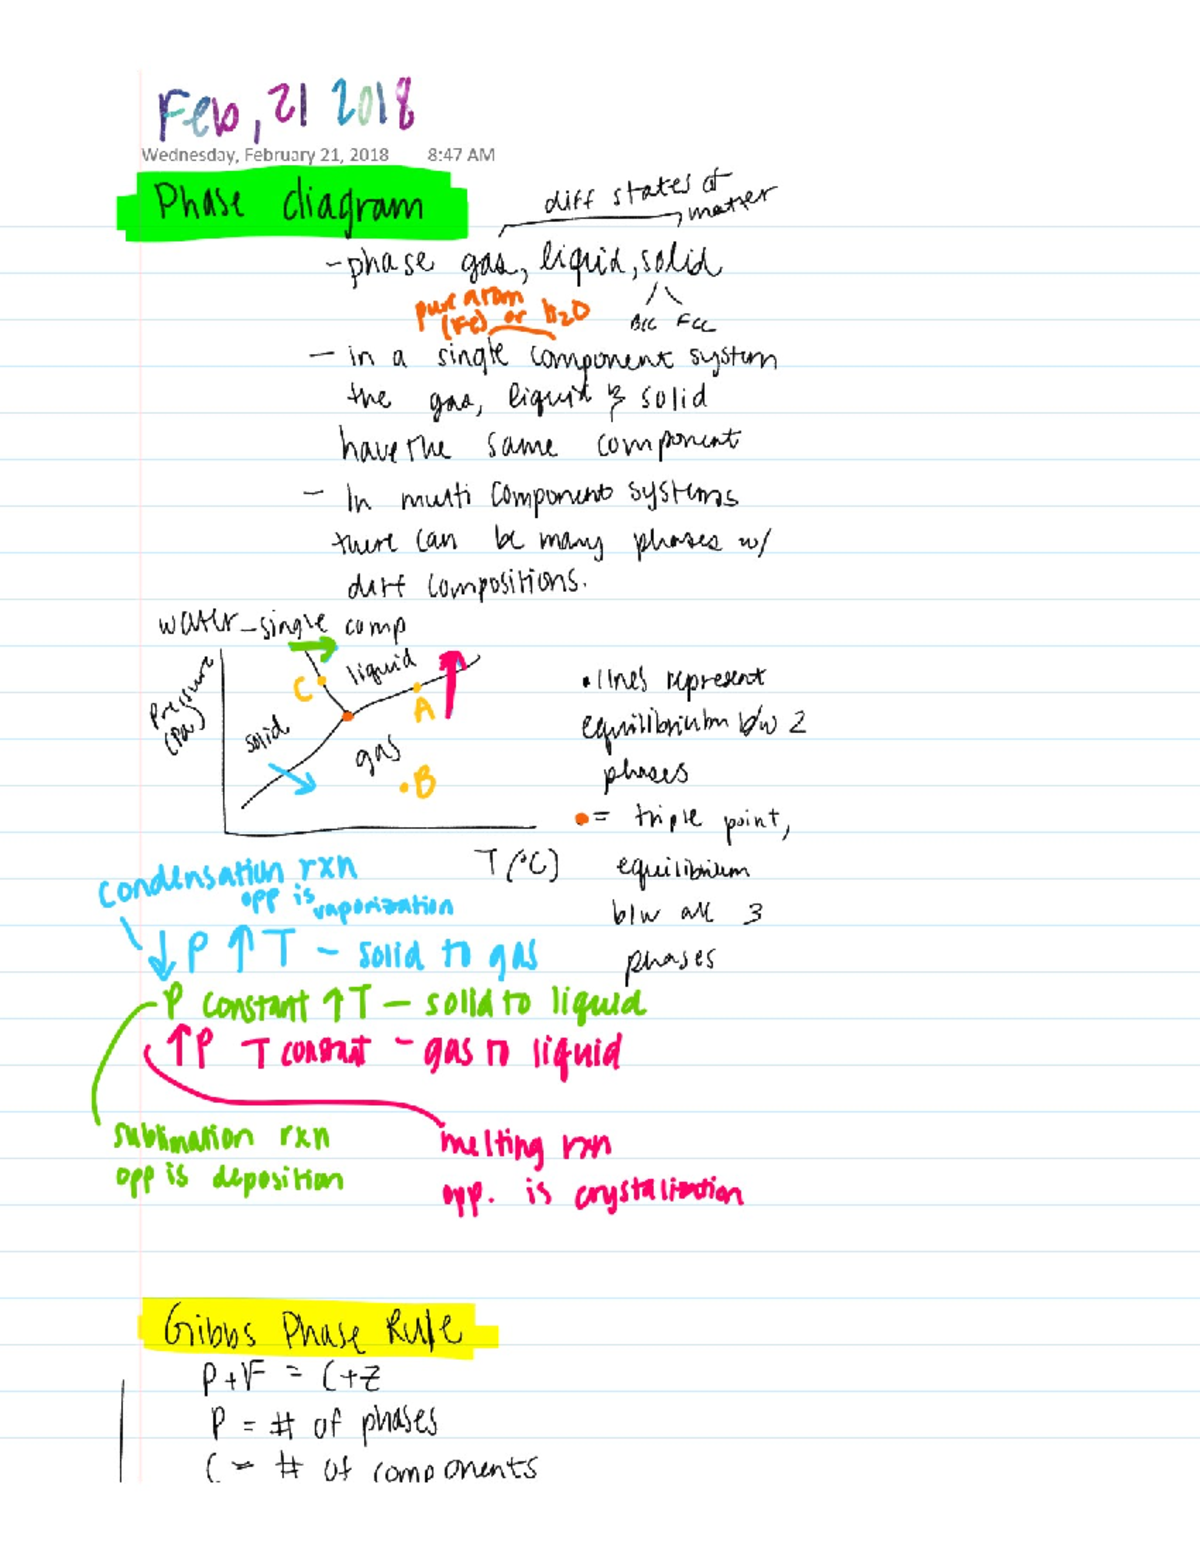 Feb, 21 2018
Wednesday, February 21, 2018 8:47 AM
Phase diagram
diff states of matter
- phase gas, liquid, solid
BCC FCC
pure atom
(Fe) or H2O
- in a single component system
the gas, liquid & solid
have the same component
- In multi component systems
there can be many phases w/
diff compositions.
water - single comp
Pressure
(Pa)
solid
liquid
gas
C
A
B
T (°C)
• lines represent
equilibrium b/w 2
phases
• = triple point,
equilibrium
b/w all 3
phases
condensation rxn
opp is vaporization
↓ P ↑ T - solid to gas
P constant ↑ T - solid to liquid
↑ P T constant - gas to liquid
sublimation rxn
opp is deposition
melting rxn
opp. is crystalization
Gibbs Phase Rule
P + F = C + 2
P = # of phases
C = # of components